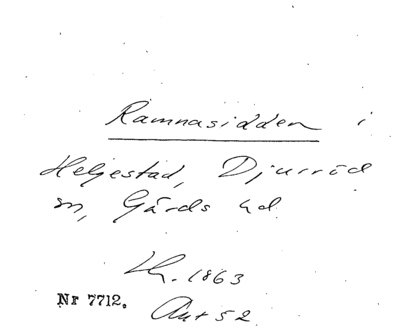 Ramnasidden i
Heljestad, Djurröd
sn, Gärds hd.
Lh. 1863
Nr 7712. Ant 52